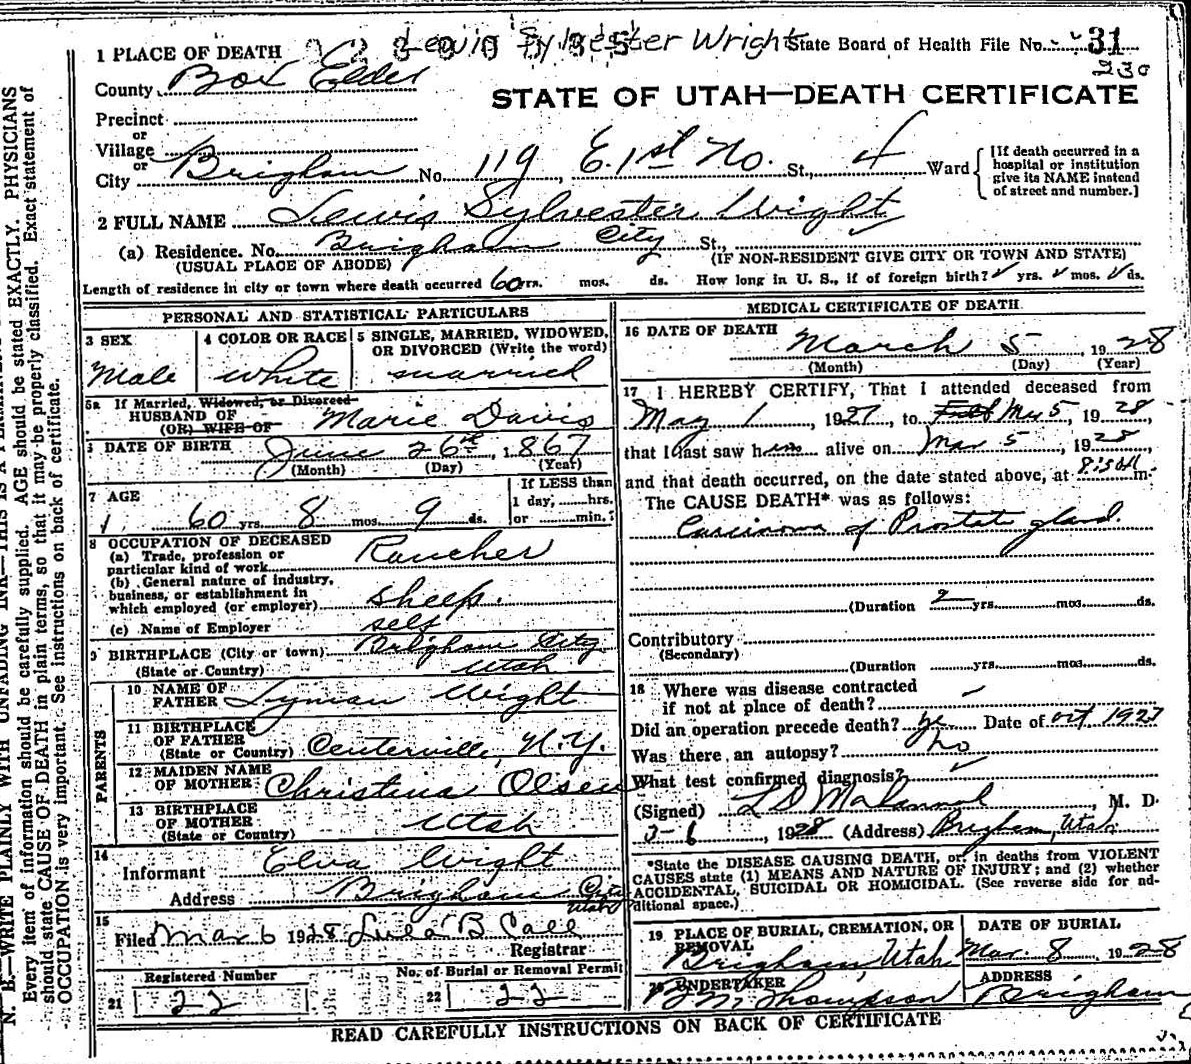 Lewis Sylvester Wright State Board of Health File No. 31
1 PLACE OF DEATH
County Box Elder
STATE OF UTAH—DEATH CERTIFICATE
Precinct
or
Village
or
City Brigham No. 119, E. 1st No. St., 4 Ward
[If death occurred in a
hospital or institution
give its NAME instead
of street and number.]
2 FULL NAME Lewis Sylvester Wright
(a) Residence. No. Brigham City St.,
(USUAL PLACE OF ABODE) (IF NON-RESIDENT GIVE CITY OR TOWN AND STATE)
Length of residence in city or town where death occurred 60 yrs. mos. ds. How long in U. S., if of foreign birth? yrs. mos. ds.
PERSONAL AND STATISTICAL PARTICULARS
3 SEX
Male
4 COLOR OR RACE
White
5 SINGLE, MARRIED, WIDOWED,
OR DIVORCED (Write the word)
married
5a If Married, Widowed, or Divorced
HUSBAND OF
(OR) WIFE OF Marie Davis
6 DATE OF BIRTH June 26th, 1867
(Month) (Day) (Year)
7 AGE
60 yrs. 8 mos. 9 ds.
If LESS than
1 day, hrs.
or min.
8 OCCUPATION OF DECEASED
(a) Trade, profession or
particular kind of work Rancher
(b) General nature of industry,
business, or establishment in
which employed (or employer) sheep.
(c) Name of Employer self
9 BIRTHPLACE (City or town) Brigham City
(State or Country) Utah
PARENTS
10 NAME OF
FATHER Lyman Wight
11 BIRTHPLACE
OF FATHER
(State or Country) Centerville, N.Y.
12 MAIDEN NAME
OF MOTHER Christina Olsen
13 BIRTHPLACE
OF MOTHER
(State or Country) Utah
14
Informant Elva Wight
Address Brigham City
Utah
15
Filed Mar 6 1928 Lula B Call
Registrar
Registered Number
21 22
No. of Burial or Removal Permit
22 22
MEDICAL CERTIFICATE OF DEATH
16 DATE OF DEATH
March 5, 1928
(Month) (Day) (Year)
17 I HEREBY CERTIFY, That I attended deceased from
May 1, 1927, to Mar 5, 1928
that I last saw him alive on Mar 5, 1928
and that death occurred, on the date stated above, at m.
The CAUSE DEATH* was as follows:
Carcinoma of Prostate gland.
(Duration 2 yrs. mos. ds.
Contributory
(Secondary)
(Duration yrs. mos. ds.
18 Where was disease contracted
if not at place of death?
Did an operation precede death? yes Date of Oct 1927
Was there an autopsy? no
What test confirmed diagnosis?
(Signed) , M. D.
3-6, 1928 (Address) Brigham, Utah
*State the DISEASE CAUSING DEATH, or, in deaths from VIOLENT
CAUSES state (1) MEANS AND NATURE OF INJURY; and (2) whether
ACCIDENTAL, SUICIDAL OR HOMICIDAL. (See reverse side for ad-
ditional space.)
19 PLACE OF BURIAL, CREMATION, OR
REMOVAL
Brigham, Utah
DATE OF BURIAL
Mar. 8, 1928
20 UNDERTAKER
Thompson
ADDRESS
Brigham
READ CAREFULLY INSTRUCTIONS ON BACK OF CERTIFICATE
N. B.—WRITE PLAINLY WITH UNFADING INK—THIS IS A
Every item of information should be carefully supplied. AGE should be stated EXACTLY. PHYSICIANS
should state CAUSE OF DEATH in plain terms, so that it may be properly classified. Exact statement of
OCCUPATION is very important. See instructions on back of certificate.